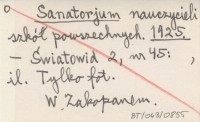 Sanatorjum nauczycieli
szkół powszechnych. 1925.
- Światowid 2, nr 45: ,
il. Tylko fot.
W. Zakopanem.
BT/063/0855